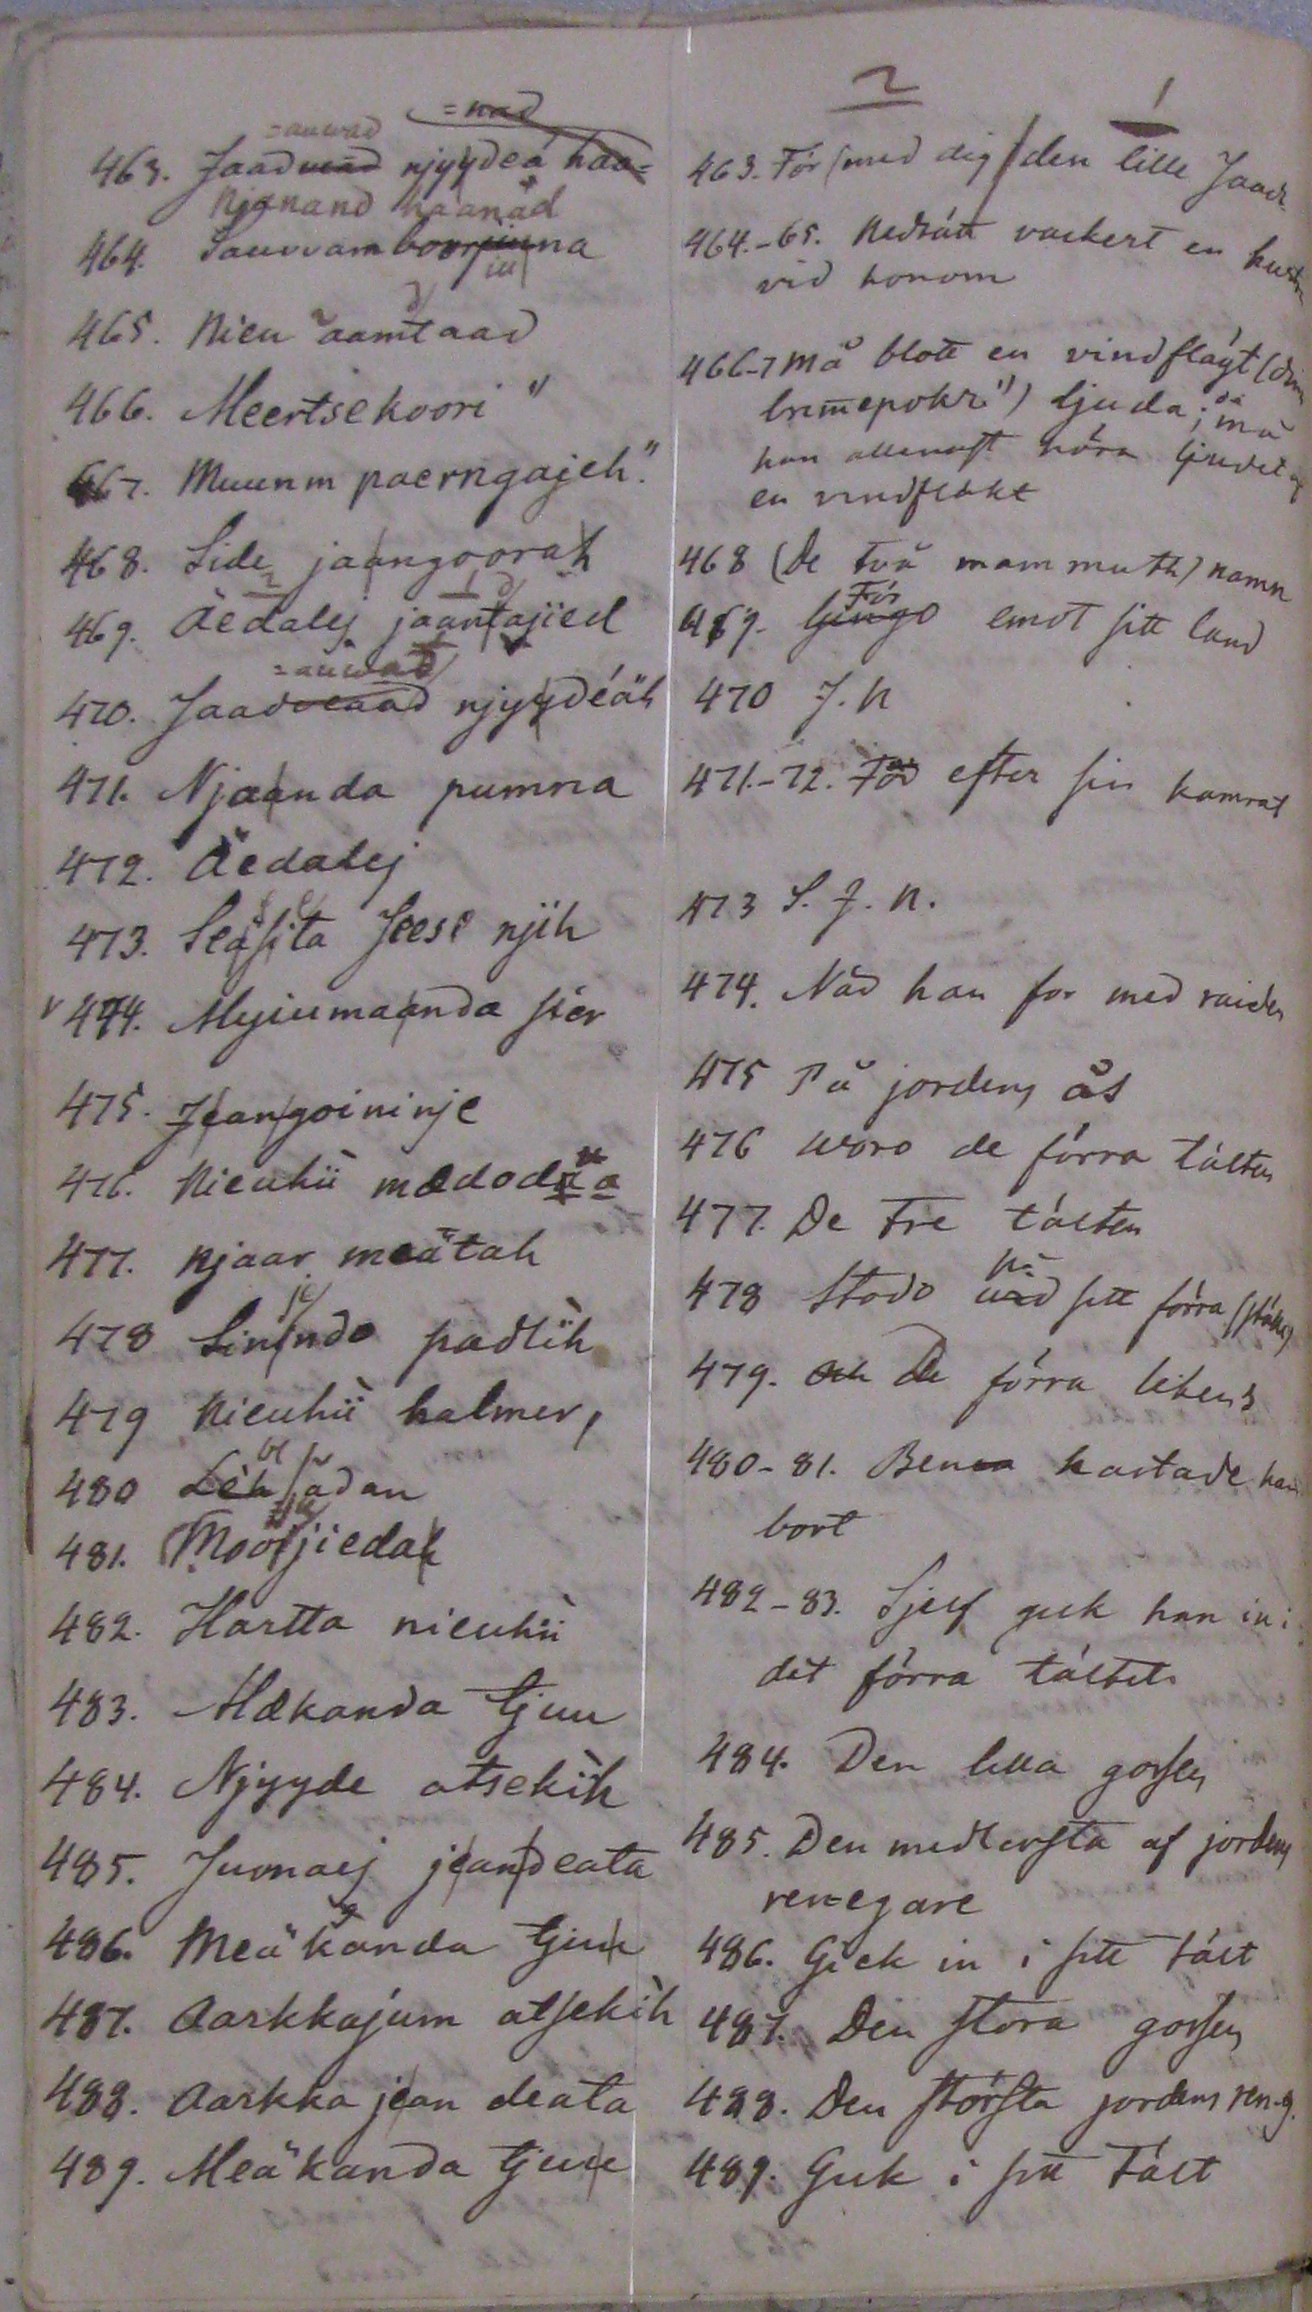 =nad
=auwad
463. Jaadvead njyydeá haa=
Njanand haanäd
464. Sauvvam boorjiuna
iu
465. Nieu aamtaad
466. Meertsekoori"
467. Muunm paerngajeh."
468. Side jaangoorah
469. Äedalej jaantajied
=auwad
470. Jaadveaad njyydéäh
471. Njaanda pumna
472. Äedalej
473. Seäsita Jeese njih
474. Myiumaanda sier
475. Jeangoininje
476. Nieuhii mædodäa
477. Njaar meätah
je
478 Sinnda padlih
479 Nieuhii halmer,
480 Leh ädan
481. Moojjiedah
482. Hartta nieuhii
483. Mækanda tjuu
484. Njyyde atsekih
485. Juonaej jeandeata
486. Meäkanda tjuu
487. Aarkkajum atsekih
488. Aarkka jean deata
489. Meäkanda tjuu
2 1
463. För (med dig) den lille Jaad-
464.-65. Nedsätt vackert en
vid honom
466-7 Må blott en vindflägt (
ljuda; då må
han allenast höra ljudet af
en vindfläkt
468 (De två mammuth) namn
För
469. Gingo emot sitt land
470 J. N
471.-72. För efter sin kamrat
473 S. J. N.
474. När han for med raiden
475 På jordens ås
476 Woro de förra tälten
477. De tre tälten
På
478 Stodo vid sitt förra (ställe)
479. Och De förra likens
480-81. Bena kastade han
bort
482-83. Sjelf gick han in i
det förra tältet
484. Den lilla gossen
485. Den medlersta af jordens
renegare
486. Gick in i sitt tält
487. Den stora gossen
488. Den största jordens ren-g.
489. Gick i sitt tält